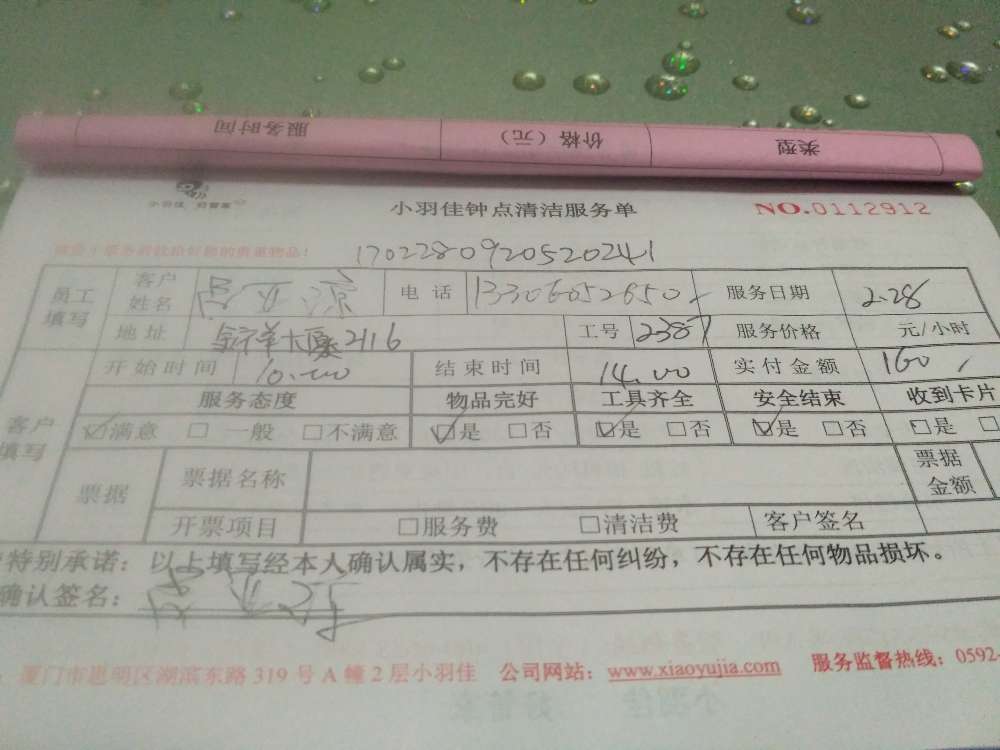 服务时间 价格（元） 类型
小羽佳 好管家
小羽佳钟点清洁服务单 NO.0112912
1702280920520241
员工填写 客户姓名 电话 13306052650 服务日期 2.28
地址 2116 工号 2387 服务价格 元/小时
开始时间 10.00 结束时间 14.00 实付金额 160
服务态度 物品完好 工具齐全 安全结束 收到卡片
客户填写 ☑满意 □一般 □不满意 ☑是 □否 ☑是 □否 ☑是 □否 □是 □
票据 票据名称 票据金额
开票项目 □服务费 □清洁费 客户签名
特别承诺：以上填写经本人确认属实，不存在任何纠纷，不存在任何物品损坏。
确认签名：
厦门市思明区湖滨东路 319 号 A 幢 2 层小羽佳 公司网站：www.xiaoyujia.com 服务监督热线：0592-